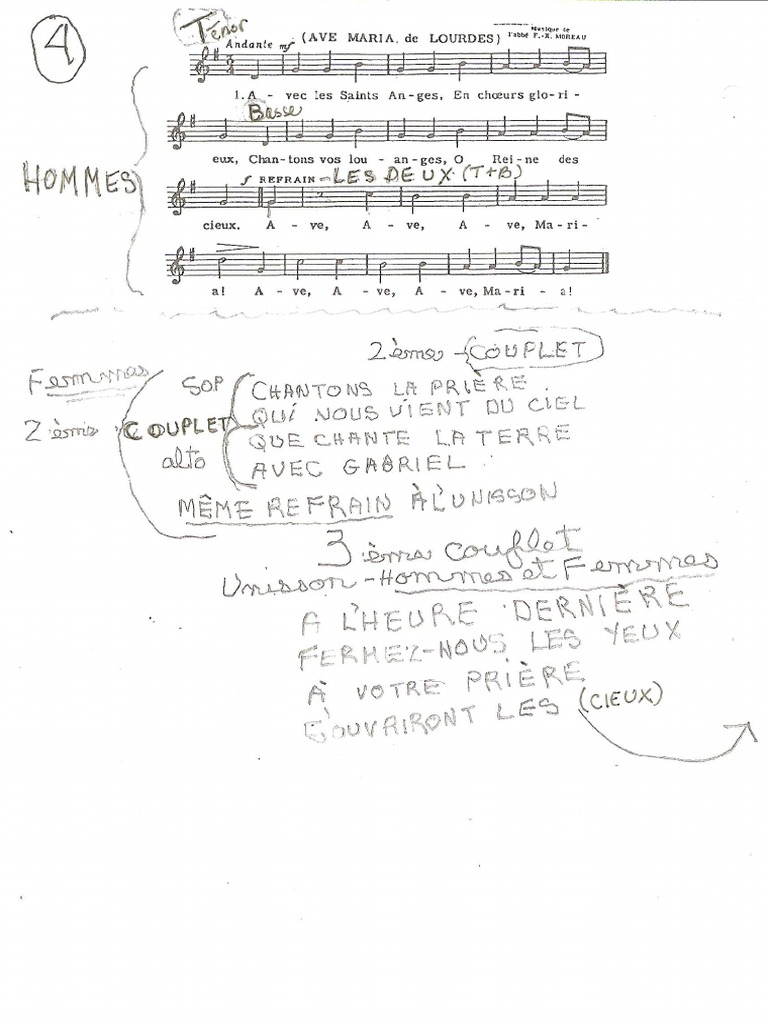 4
Ténor
Andante mf (AVE MARIA. de LOURDES) Musique de
l'abbé F.-X. MOREAU
1. A - vec les Saints An - ges, En chœurs glo - ri -
Basse
eux, Chan - tons vos lou - an - ges, O Rei - ne des
HOMMES
f REFRAIN - LES DEUX (T+B)
cieux. A - ve, A - ve, A - ve, Ma - ri -
a! A - ve, A - ve, A - ve, Ma - ri - a!
2ième - COUPLET
Femmes
2ième COUPLET
SOP
CHANTONS LA PRIÈRE
QUI NOUS VIENT DU CIEL
alto
QUE CHANTE LA TERRE
AVEC GABRIEL
MÊME REFRAIN À L'UNISSON
3ième couplet
Unisson - Hommes et Femmes
A L'HEURE DERNIÈRE
FERMEZ-NOUS LES YEUX
À VOTRE PRIÈRE
S'OUVAIRONT LES (CIEUX)